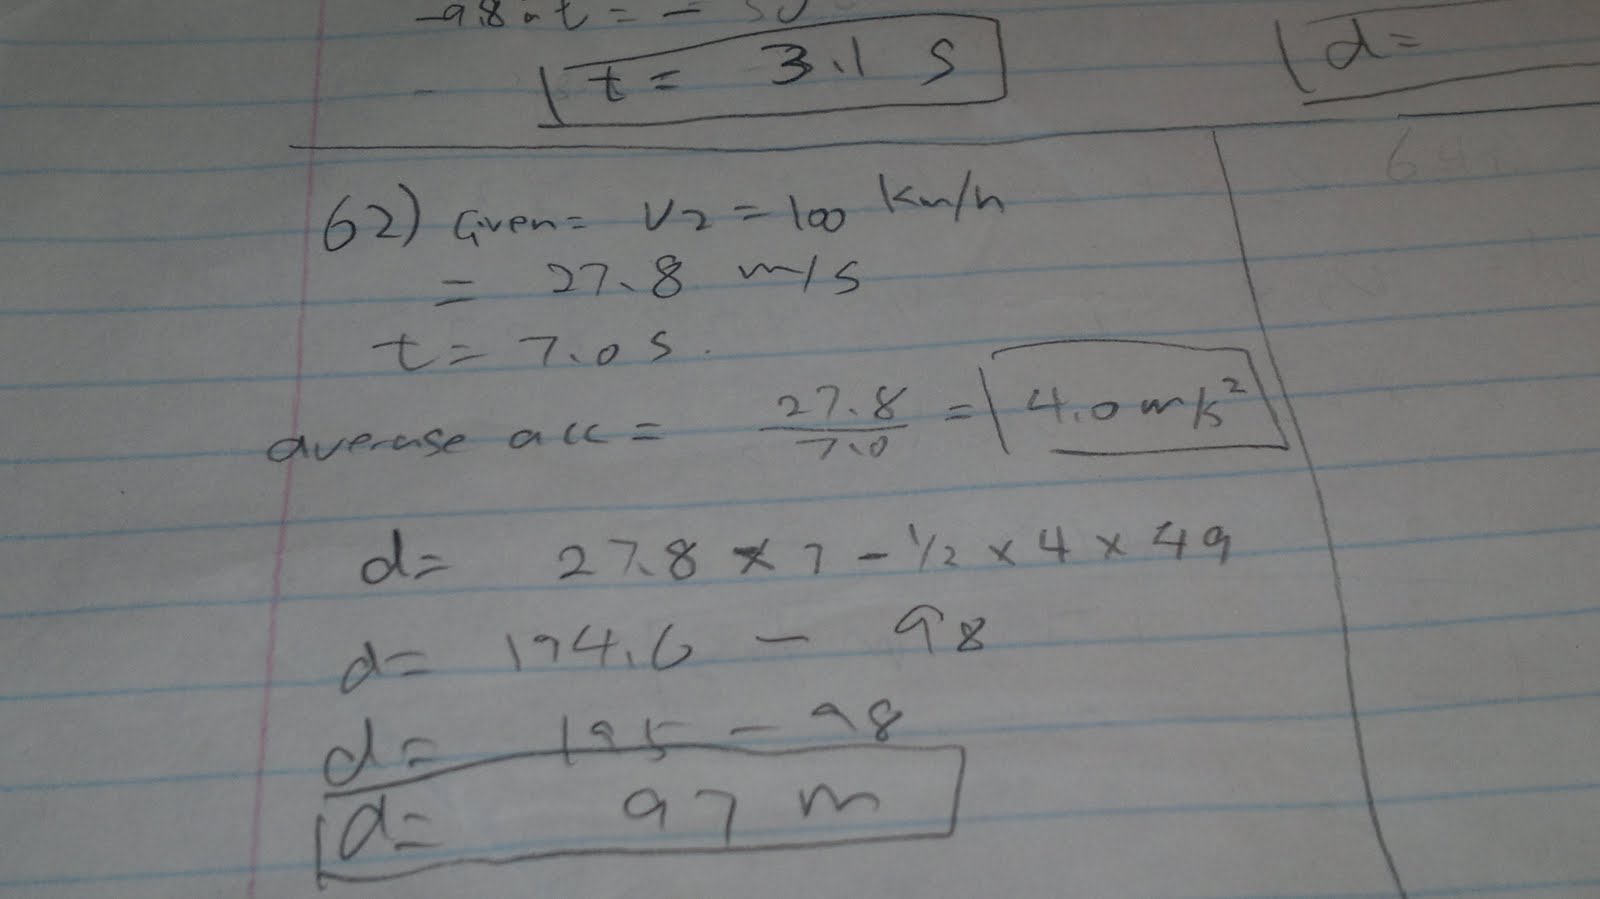 -9.8 · t = - 30
t = 3.1 s
d =
62) Given = V2 = 100 km/h
= 27.8 m/s
t = 7.0 s.
average acc = 27.8/7.0 = 4.0 m/s²
d = 27.8 × 7 - 1/2 × 4 × 49
d = 194.6 - 98
d = 195 - 98
d = 97 m